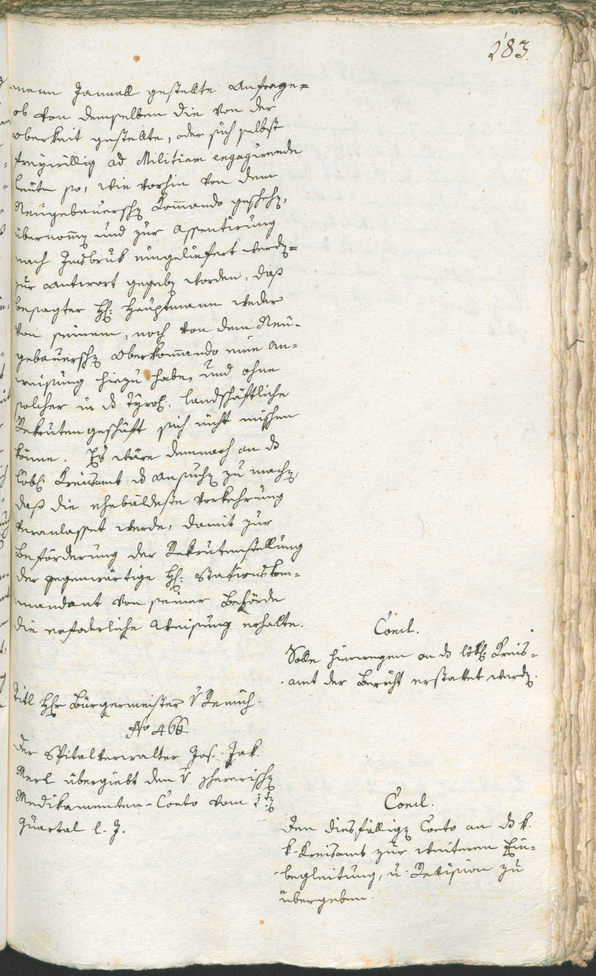 283.
mann Jannall gestellte Anfrage=
ob von demselben die von der
Oberkeit gestellte, oder sich selbst
freywillig ad Militiam engagirende
Leute so, wie vorhin von dem
Neugebauersch Commando gescheh,
übernomm und zur Assentirung
nach Insbruk eingeliefert werd=
zur Antwort gegeb worden, daß
besagter H: Hauptmann weder
von seinem, noch von dem Neu-
gebauersch Oberkommando eine An-
weisung hiezu habe, und ohne
solcher in ds Tyrol: landschäftliche
Rekruten geschäft sich nicht mischen
könne. Es wäre demnach an ds
löbl: Kreisamt ds Ansuch zu mach,
daß die ehebäldeste Vorkehrung
veranlasset werde, damit zur
Beförderung der Rekrutenstellung
der gegenwärtige H: Stationskom-
mandant von seiner Behörde
die erfoderliche Weisung erhalte.
Concl.
Solle hierwegen an ds löbl: Kreis-
amt der Bericht erstattet werd.
Titl Hr Bürgermeister v
No 466.
Der Spitalverwalter Jos: Jak:
Merl übergiebt den v
Medikamenten-Conto vom 3t
Quartal l. J.
Concl.
Den diesfällig Conto an ds k.
k. Kreisamt zur weiteren Ein-
begleitung, u: Revision zu
übergeben.